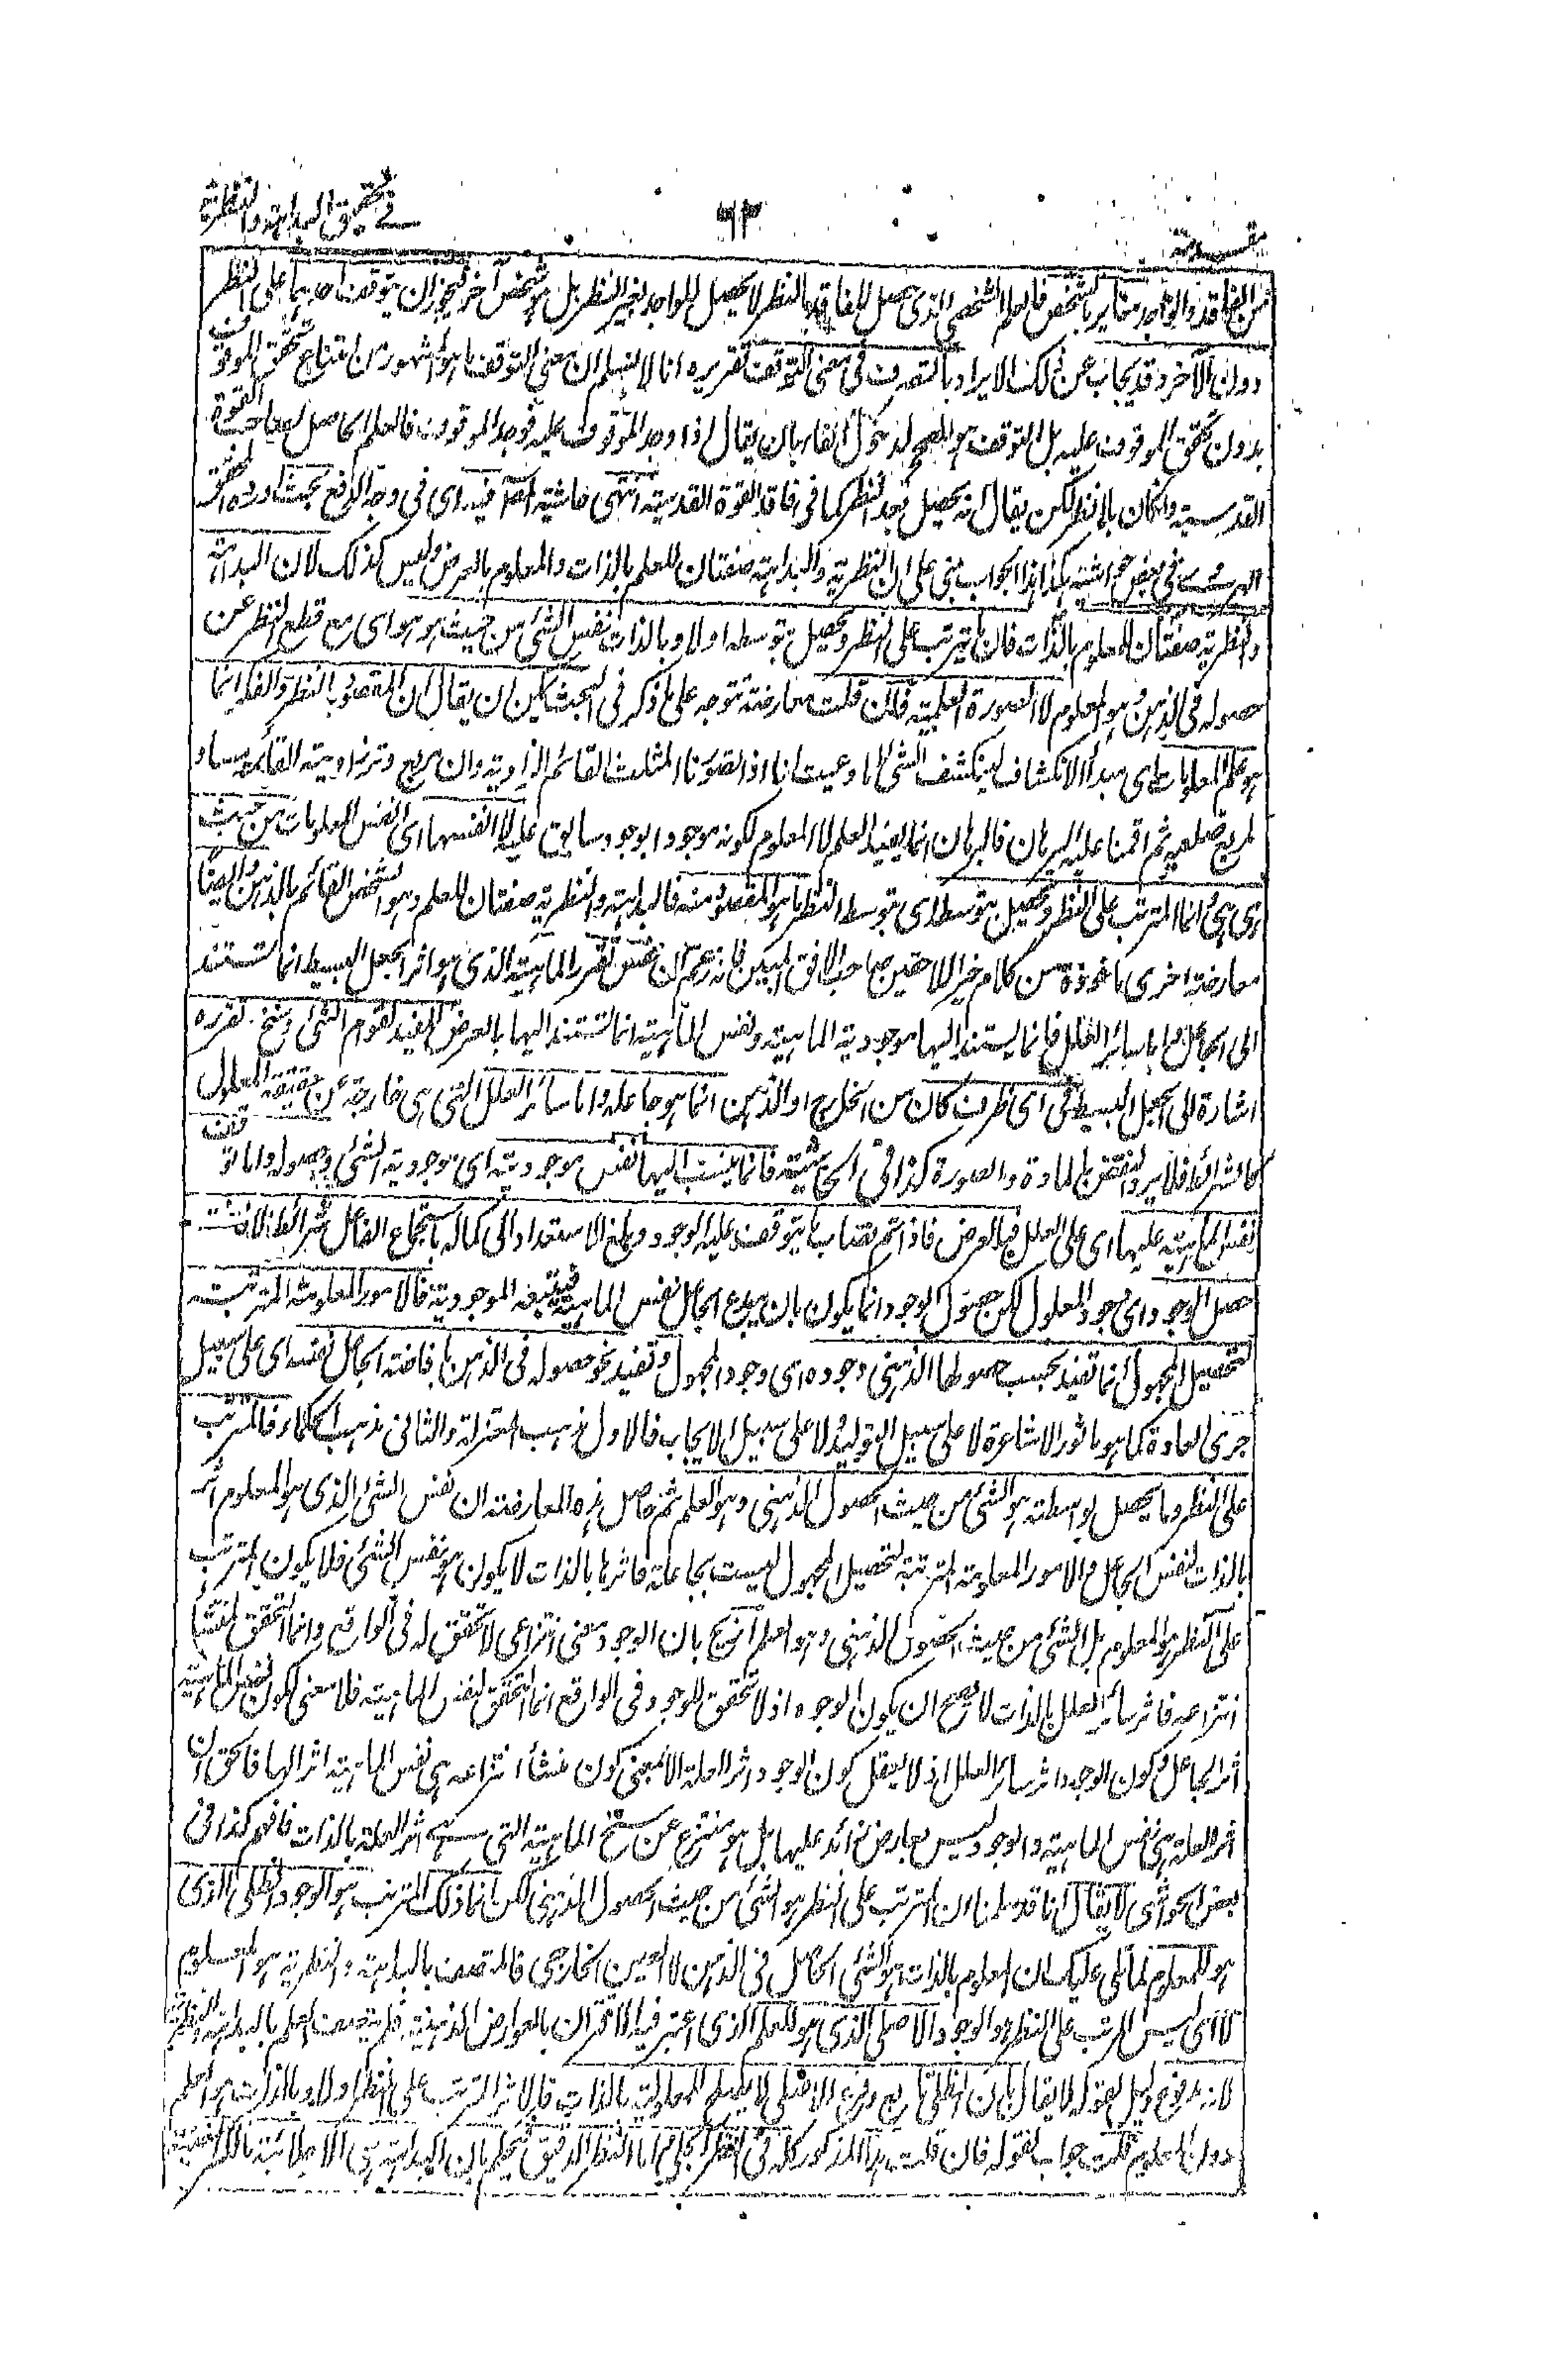 مقدمة
٦٣
في تحقيق البداهة والنظرية
من الفاقد والواجد مغاير بالشخص فالعلم الشخصي الذي حصل للفاقد بالنظر لا يحصل للواجد بغير النظر بل هو شخص آخر فيجوز ان يتوقف احدهما على النظر
دون الآخر وقد يجاب عن ذلك الايراد بالتصرف في معنى التوقف تقريره انا لا نسلم ان معنى التوقف ما هو المشهور من امتناع تحقق الموقوف
بدون تحقق الموقوف عليه بل التوقف هو المصحح لدخول الفاء بان يقال اذا وجد الموقوف عليه فوجد الموقوف فالعلم الحاصل لصاحب القوة
القدسية وان كان بلا نظر لكن يقال انه يحصل بعد النظر كما في فاقد القوة القدسية انتهى حاشية المصنف فيه اى في وجه الدفع بحث اورده المحقق
الهروي في بعض حواشيه بان هذا الجواب مبني على ان النظرية والبداهة صفتان للعلم بالذات والمعلوم بالعرض وليس كذلك لان البداهة
والنظرية صفتان للمعلوم بالذات فان ما يترتب على النظر ويحصل بتوسطه اولا وبالذات نفس الشئ من حيث هو هو اى مع قطع النظر عن
حصوله في الذهن وهو المعلوم لا الصورة العلمية فان قلت معارضة تتوجه على ما ذكر في البحث يمكن ان يقال ان المقصود بالنظر والفكر انما
هو علم المعلومات اى مبدأ الانكشاف لينكشف الشئ اما وعيت انا اذا تصورنا المثلث القائم الزاوية وان مربع وتر زاوية القائمة مساو
لمربع ضلعيه ثم اقمنا عليه البرهان فالبرهان انما يفيد العلم لا المعلوم لكونه موجودا بوجود سابق عليه لا انفسها اى انفس المعلومات من حيث
هى هى انما المترتب على النظر ويحصل بتوسطه اى بتوسط النظر ما هو المقصود منه فالبداهة والنظرية صفتان للعلم وهو الشخص القائم بالذهن وايضا
معارضة اخرى ماخوذة من كلام خير اللاحقين صاحب الافق المبين فانه زعم ان نفس تقرر الماهية الذي هو اثر الجعل البسيط انما تستند
الى الجاعل واما سائر العلل فانما يستند اليها موجودية الماهية ونفس الماهية انما تستند اليها بالعرض المفيد لقوام الشئ وسنخ تقرره
اشارة الى الجعل البسيط في اى ظرف كان من الخارج او الذهن انما هو جاعله واما سائر العلل التي هى خارجة عن حقيقة المعلول
كالشرائط فلا يرد النقض بالمادة والصورة كذا في الحاشية فانما ينسب اليها نفس موجوديته اى موجودية الشئ وحصوله واما توقف
نفس الماهية عليها اى على العلل فبالعرض فاذا تم نصاب ما يتوقف عليه الوجود وبلغ الاستعداد الى كماله باستجماع الفاعل شرائط الافاضة
حصل الوجود اى وجود المعلول لكن حصول الوجود انما يكون بان يبدع الجاعل نفس الماهية فيتبعه الموجودية فالامور المعلومة المترتبة
لتحصيل المجهول انما تفيد بحسب حصولها الذهني وجوده اى وجود المجهول وتفيد نحو حصوله في الذهن بافاضة الجاعل نفسه اى على سبيل
جرى العادة كما هو ماثور الاشاعرة لا على سبيل التوليد ولا على سبيل الايجاب فالاول مذهب المعتزلة والثاني مذهب الحكماء فالمترتب
على النظر وما يحصل بواسطته هو الشئ من حيث الحصول الذهني وهو العلم ثم حاصل هذه المعارضة ان نفس الشئ الذي هو المعلوم اثر
بالذات لنفس الجاعل والامور المعلومة المترتبة لتحصيل المجهول ليست بجاعلة فاثرها بالذات لا يكون هو نفس الشئ فلا يكون المترتب
على النظر هو المعلوم بل الشئ من حيث الحصول الذهني وهو العلم ازيح بان الوجود معنى انتزاعى لا تحقق له في الواقع وانما التحقق لمنشأ
انتزاعه فاثر سائر العلل بالذات لا يصح ان يكون الوجود اذ لا تحقق للوجود في الواقع انما التحقق لنفس الماهية فلا معنى لكون نفس الماهية
اثر الجاعل وكون الوجود اثر سائر العلل اذ لا يعقل كون الوجود اثرا لعلة الا بمعنى كون منشأ انتزاعه هى نفس الماهية اثرا لها فالحق ان
اثر العلة هى نفس الماهية والوجود ليس بعارض زائد عليها بل هو منتزع عن سنخ الماهية التي هى اثر العلة بالذات فافهم كذا في
بعض الحواشى لا يقال انا قد سلمنا ان المترتب على النظر هو الشئ من حيث الحصول الذهني لكن انما ذلك المترتب هو الوجود الظلى الذي
هو للمعلوم لما تلى عليك ان المعلوم بالذات هو الشئ الحاصل في الذهن لا العين الخارجي فالمتصف بالبداهة والنظرية هو المعلوم
لا اى ليس المترتب على النظر هو الوجود الاصلى الذي هو للعلم الذي اعتبر فيه الاقتران بالعوارض الذهنية فلم يتصف العلم بالبداهة والنظرية
لانه مدفوع دليل لقوله لا يقال بان الظلى تابع وفرع الاصلى لا يصلح للمعلولية بالذات فالاثر المترتب على النظر اولا وبالذات هو العلم
دون المعلوم قلت جواب لقوله فان قلت هذا المذكور كله في النظر الجلى واما النظر الدقيق فيحكم بان البداهة هى